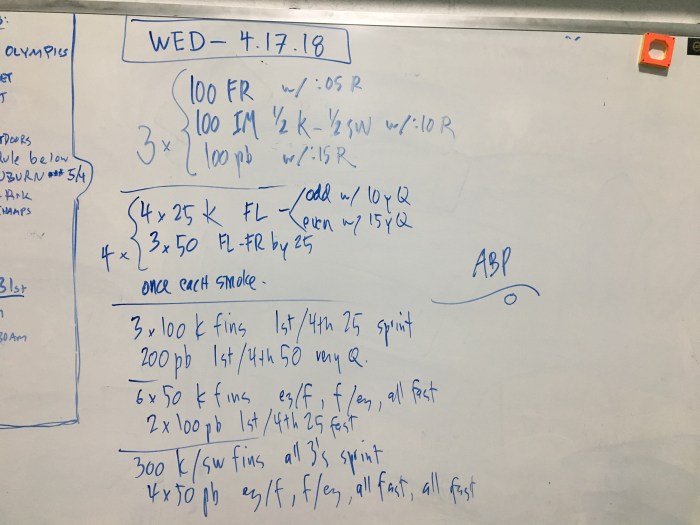 OLYMPICS
WED - 4.17.18
3 x
100 FR w/ :05 R
100 IM 1/2 K - 1/2 SW w/ :10 R
100 pb w/ :15 R
below
5/4
CHAMPS
4 x
4 x 25 K FL - odd w/ 10y Q
even w/ 15y Q
3 x 50 FL-FR by 25
once each stroke.
ABP
3 x 100 K fins 1st/4th 25 sprint
200 pb 1st/4th 50 very Q.
6 x 50 K fins ez/f, f/ez, all fast
2 x 100 pb 1st/4th 25 fast
300 K/sw fins all 3's sprint
4 x 50 pb ez/f, f/ez, all fast, all fast